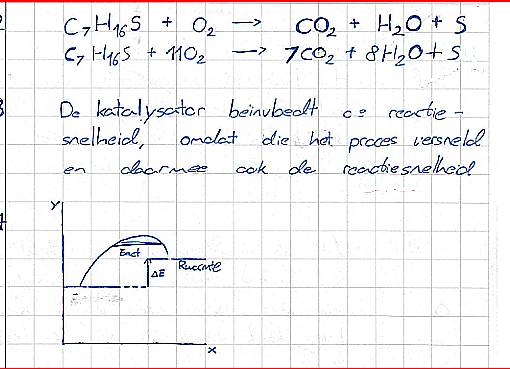 C₇H₁₆S + O₂ → CO₂ + H₂O + S
C₇H₁₆S + 11O₂ → 7CO₂ + 8H₂O + S
De katalysator beinvloedt de reactie-
snelheid, omdat die het proces versneld
en daarmee ook de reactiesnelheid
y
Eact
ΔE
x